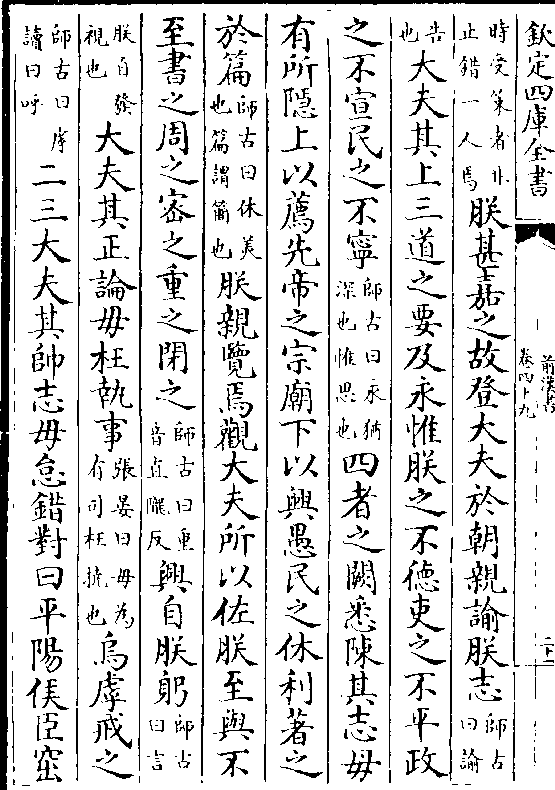 欽定四庫全書
前漢書
卷四十九
時受策者非止錯一人焉朕甚嘉之故登大夫於朝親諭朕志師古曰諭
告也大夫其上三道之要及永惟朕之不德吏之不平政
之不宣民之不寧師古曰永猶深也惟思也四者之闕悉陳其志毋
有所隱上以薦先帝之宗廟下以興愚民之休利著之
於篇師古曰休美也篇謂簡也朕親覽焉觀大夫所以佐朕至與不
至書之周之密之重之閉之師古曰重音直隴反興自朕躬師古曰言
朕自發視也大夫其正論毋枉執事張晏曰毋為有司枉撓也烏虖戒之
師古曰虖讀曰呼二三大夫其帥志毋怠錯對曰平陽侯臣窋